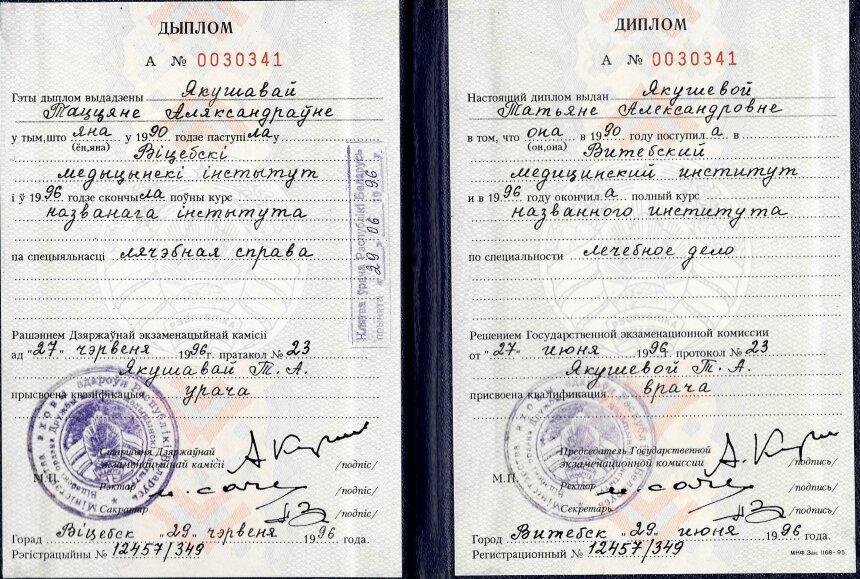 ДЫПЛОМ
А № 0030341
Гэты дыплом выдадзены Якушавай
Таццяне Аляксандраўне
у тым,што яна у 1990 годзе паступіла у
(ён,яна)
Віцебскі
медыцынскі інстытут
і ў 1996 годзе скончыла поўны курс
названага інстытута
па спецыяльнасці лячэбная справа
Рашэннем Дзяржаўнай экзаменацыйнай камісіі
ад "27" чэрвеня 1996г. пратакол № 23
Якушавай Т. А.
прысвоена кваліфікацыя урача
Старшыня Дзяржаўнай
экзаменацыйнай камісіі /подпіс/
М.П. Рэктар /подпіс/
Сакратар /подпіс/
Горад Віцебск "29" чэрвеня 1996 года.
Рэгістрацыйны № 12457/349
Клятва ўрача Рэспублікі Беларусь
прынята "29" 06 1996 г.
ДИПЛОМ
А № 0030341
Настоящий диплом выдан Якушевой
Татьяне Александровне
в том, что она в 1990 году поступила в
(он,она)
Витебский
медицинский институт
и в 1996 году окончила полный курс
названного института
по специальности лечебное дело
Решением Государственной экзаменационной комиссии
от "27" июня 1996г. протокол № 23
Якушевой Т. А.
присвоена квалификация врача
Председатель Государственной
экзаменационной комиссии /подпись/
М.П. Ректор /подпись/
Секретарь /подпись/
Город Витебск "29" июня 1996 года.
Регистрационный № 12457/349
МНФ Зак. 1168-95